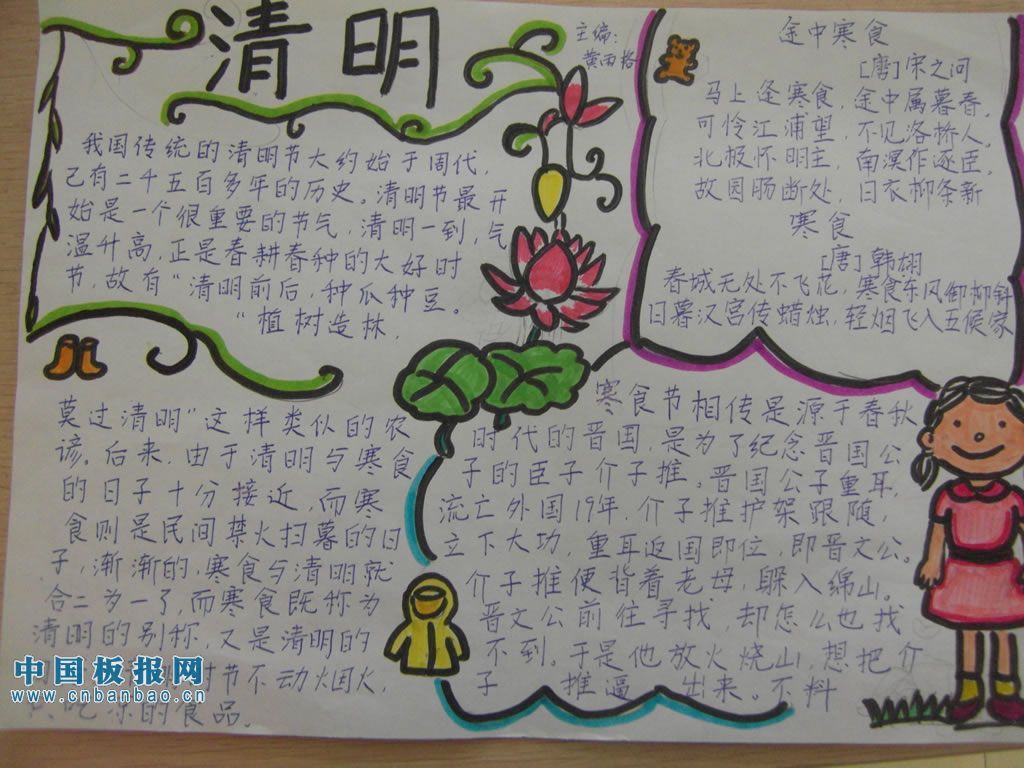 清明
主编:
黄雨格
我国传统的清明节大约始于周代,
已有二千五百多年的历史。清明节最开
始是一个很重要的节气,清明一到,气
温升高,正是春耕春种的大好时
节,故有“清明前后,种瓜种豆。
“植树造林,
莫过清明”这样类似的农
谚。后来,由于清明与寒食
的日子十分接近,而寒
食则是民间禁火扫暮的日
子,渐渐的,寒食与清明就
合二为一了,而寒食既称为
清明的别称,又是清明的
时节不动烟火,
只吃凉的食品。
途中寒食
[唐]宋之问
马上逢寒食,途中属暮春,
可怜江浦望,不见洛桥人,
北极怀明主,南溟作逐臣,
故园肠断处,日衣柳条新
寒食
[唐]韩翃
春城无处不飞花,寒食东风御柳斜
日暮汉宫传蜡烛,轻烟飞入五候家
寒食节相传是源于春秋
时代的晋国,是为了纪念晋国公
子的臣子介子推。晋国公子重耳,
流亡外国19年,介子推护架跟随,
立下大功,重耳返国即位,即晋文公。
介子推便背着老母,躲入绵山。
晋文公前往寻找,却怎么也找
不到。于是他放火烧山,想把介
子推逼出来。不料
中国板报网
www.cnbanbao.cn